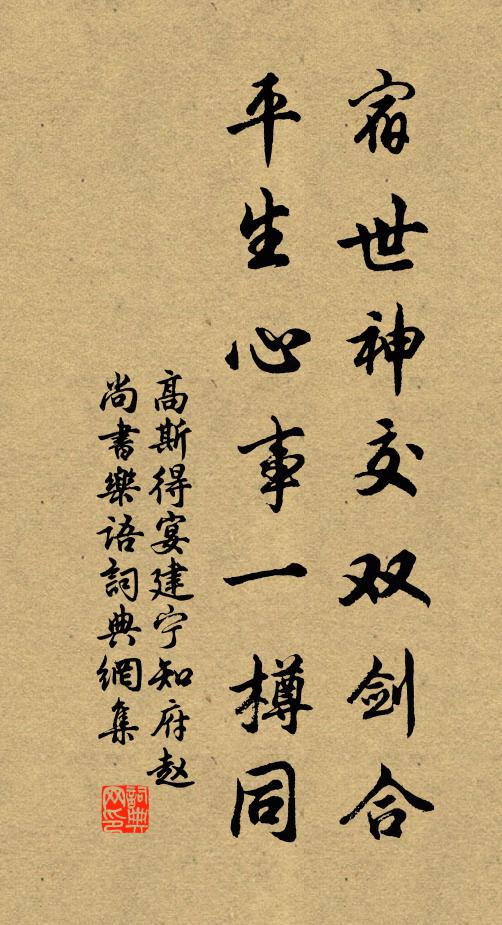 宿世神交双剑合
平生心事一樽同
高斯得宴建宁知府赵
尚書樂语詞典網集
詞典网印